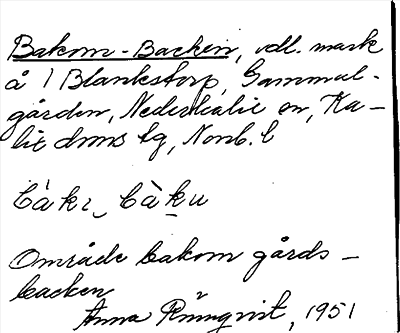 Bakom-Backen, odl. mark
å 1 Blankstorp, Gammel-
gården, Nederkalix sn, Ka-
lix dms tg, Norrb. l
bàkɩ bàku
Område bakom gårds-
backen
Anna Rönnqvist, 1951